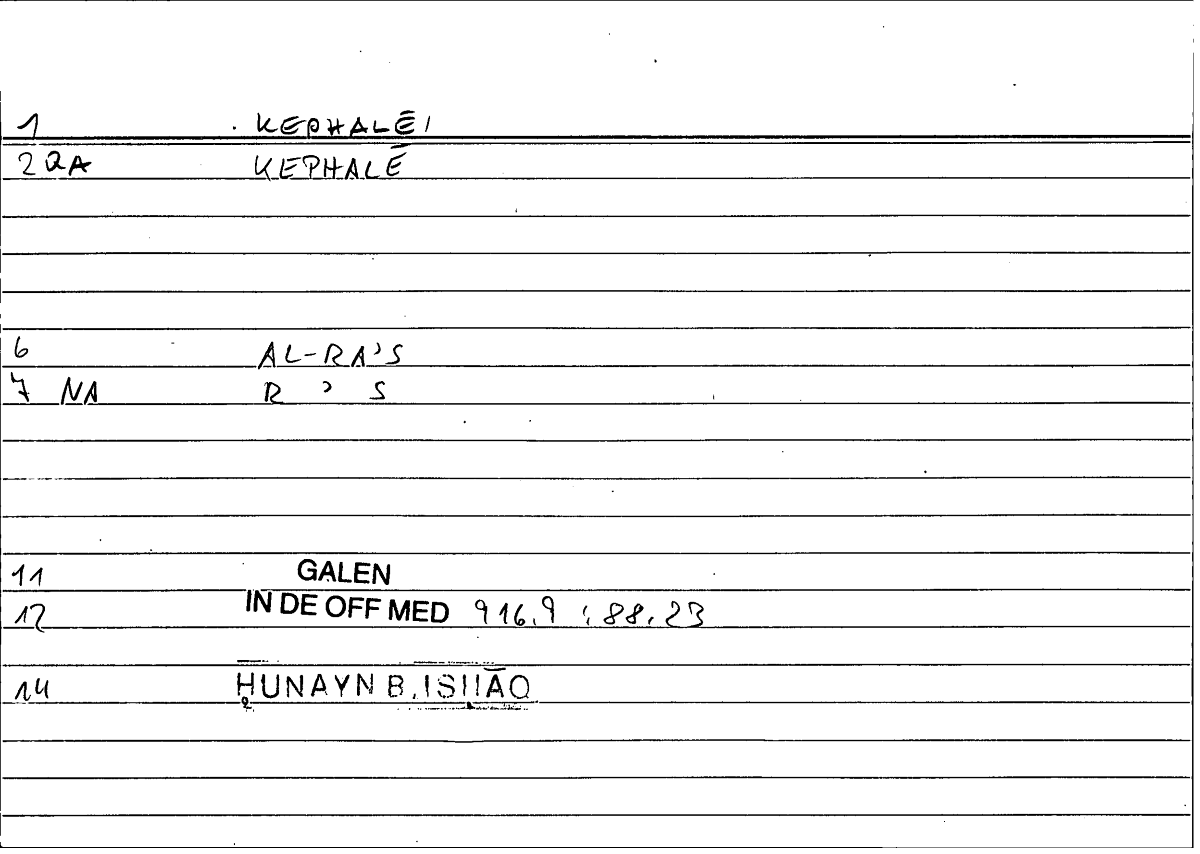 1 KEPHALĒI
2 QA KEPHALĒ
6 AL-RA'S
7 NA R ' S
11 GALEN
12 IN DE OFF MED 916,9 : 88,23
14 ḤUNAYN B. ISḤĀQ